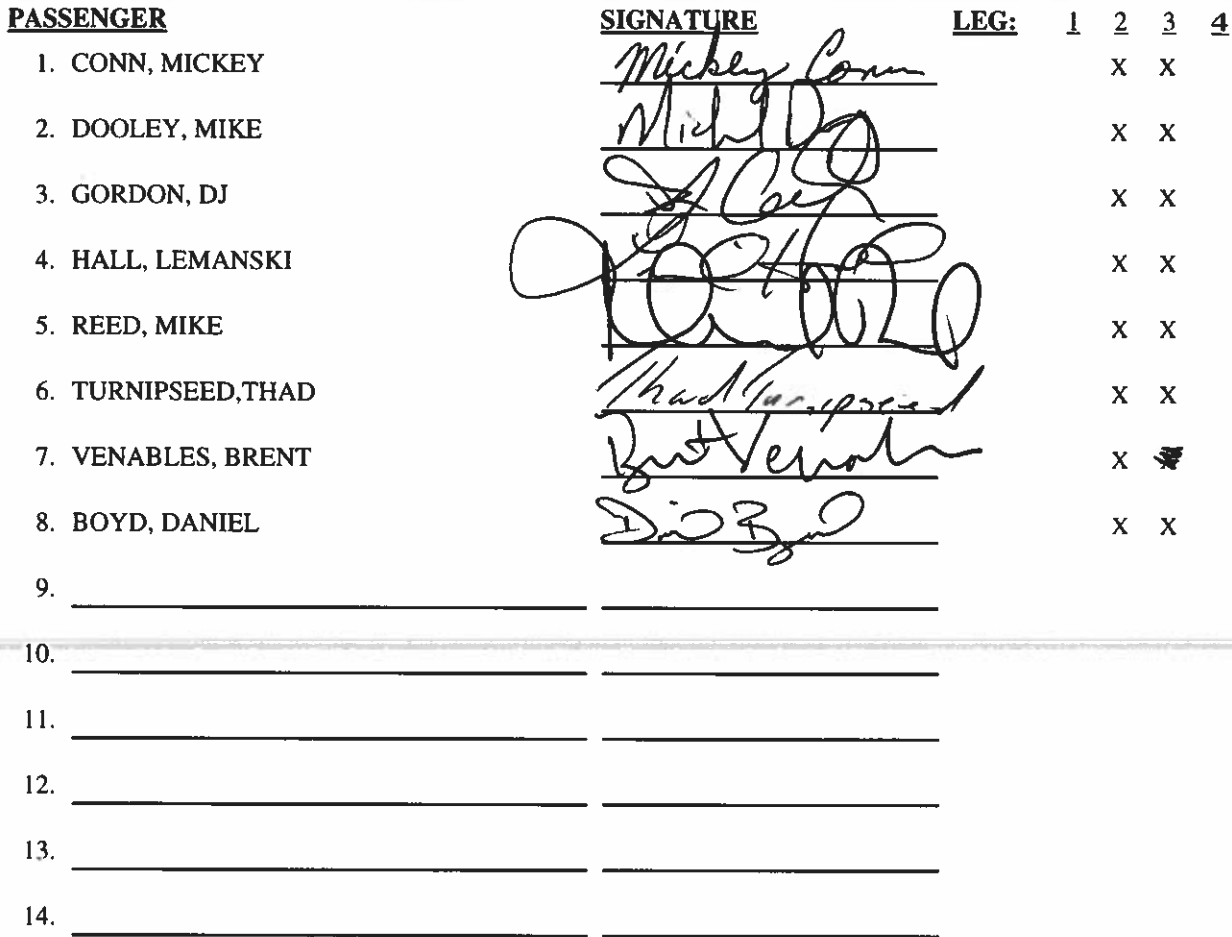 PASSENGER SIGNATURE LEG: 1 2 3 4
1. CONN, MICKEY Mickey Conn X X
2. DOOLEY, MIKE X X
3. GORDON, DJ X X
4. HALL, LEMANSKI X X
5. REED, MIKE X X
6. TURNIPSEED,THAD Thad Turnipseed X X
7. VENABLES, BRENT Brent Venables X
8. BOYD, DANIEL X X
9.
10.
11.
12.
13.
14.